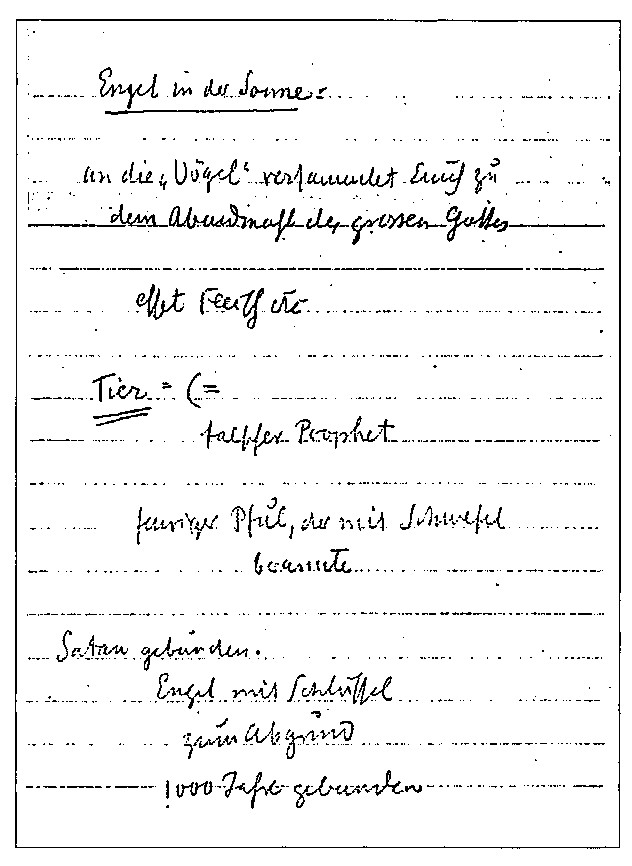 Engel in der Sonne:
an die „Vögel“ versammelt Euch zu
dem Abendmahl des grossen Gottes
esset Fleisch etc
Tier = (=
falscher Prophet
feuriger Pfuhl, der mit Schwefel
brannte
Satan gebunden.
Engel mit Schlüssel
zum Abgrund
1000 Jahre gebunden